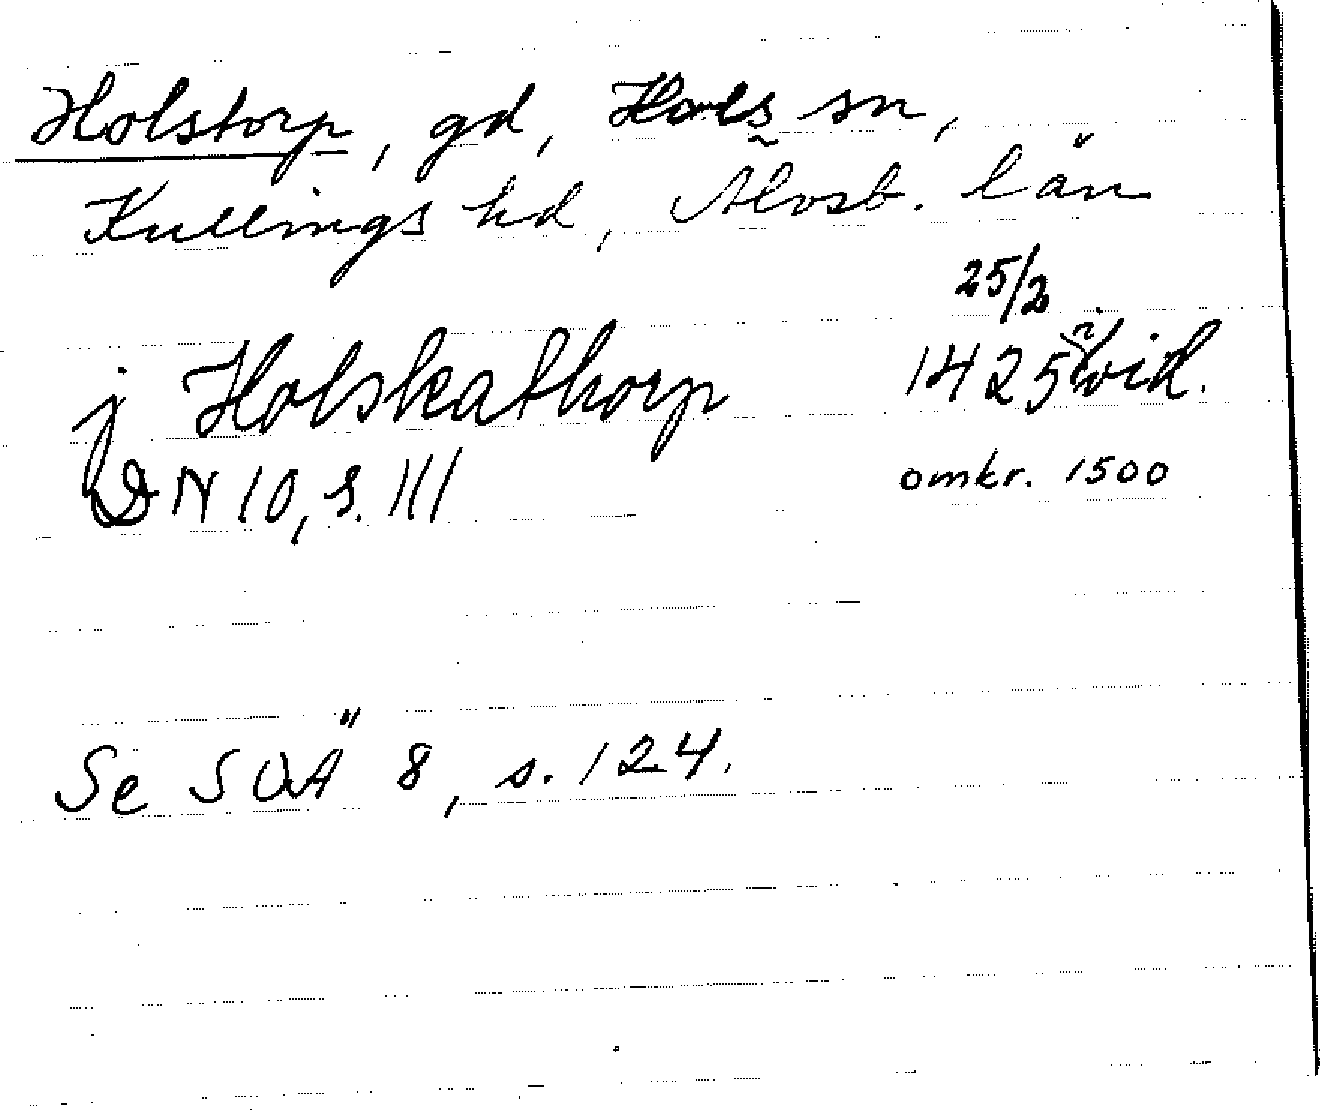 Holstorp, gd, Hols sn,
Kullings hd, Älvsb. län
25/2
j Holskathorp 1425 i vid.
DN 10, s. 111 omkr. 1500
Se SOÄ 8, s. 124.